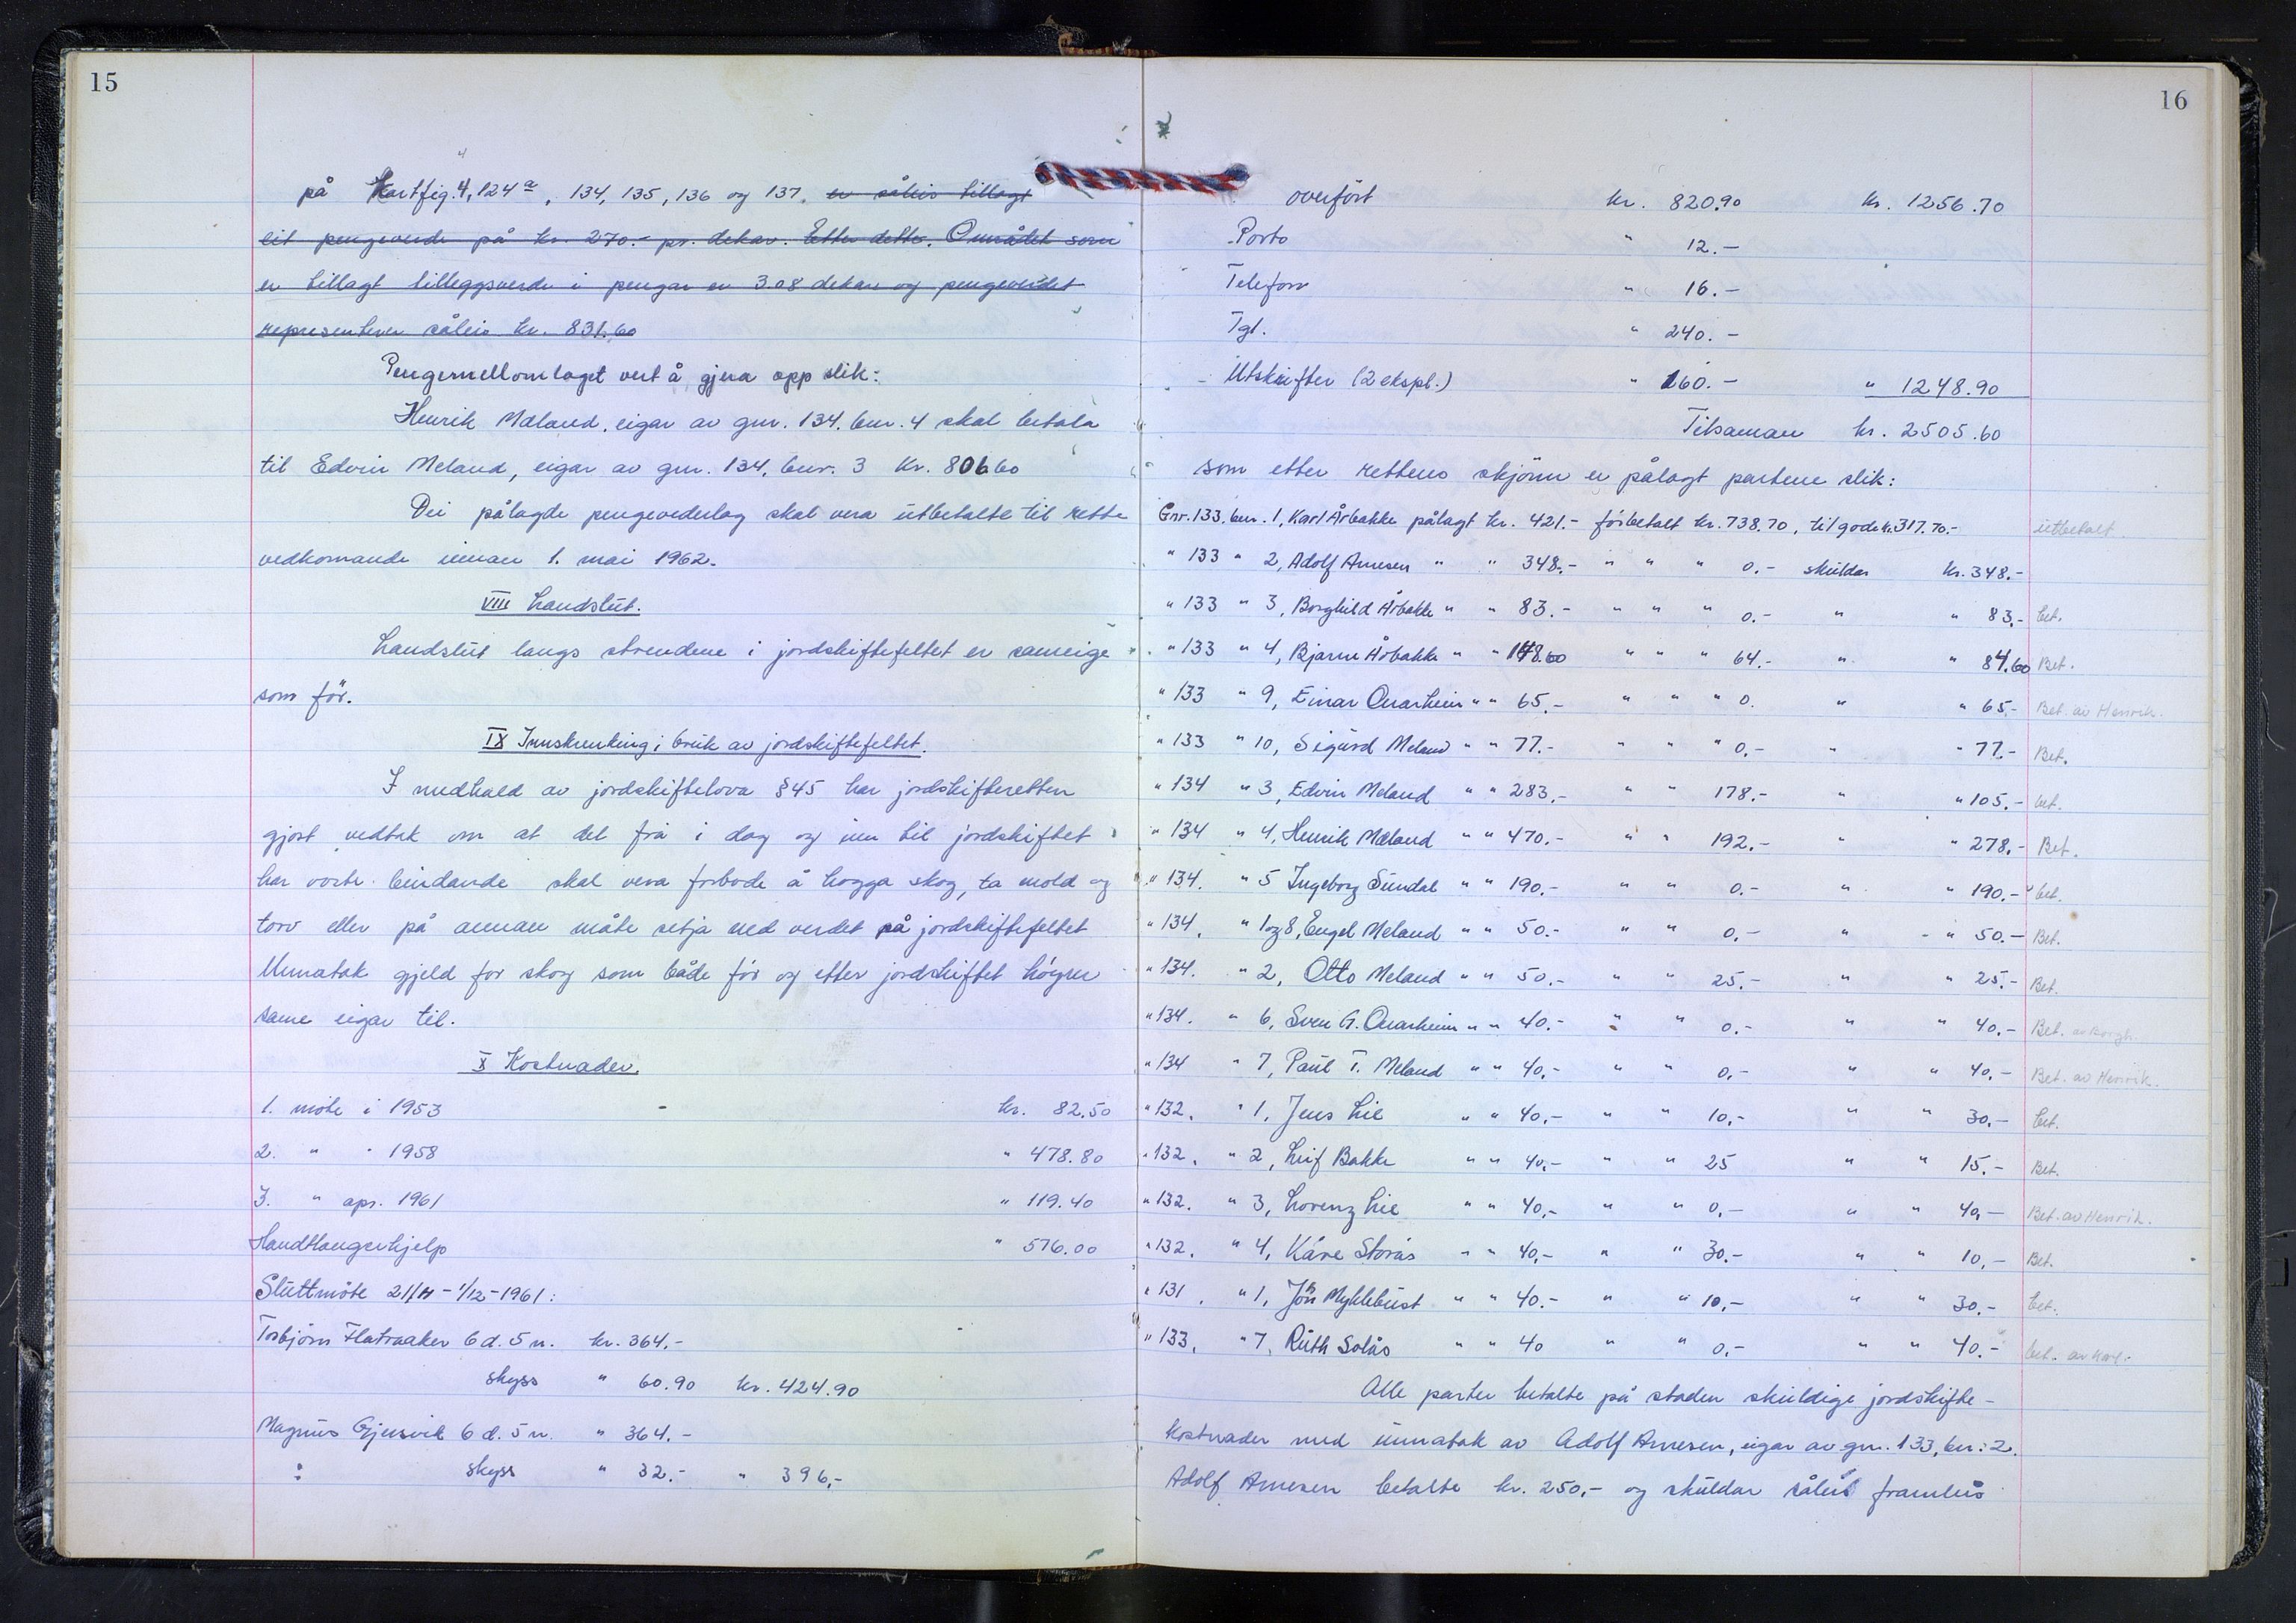 15
på Kartfig. 4, 124a, 134, 135, 136 og 137, er såleis tillagt
eit pengeverde på kr. 270.- pr. dekar. Etter dette. Området som
er tillagt tilleggsverde i pengar er 3.08 dekar og pengeverdet
representerer såleis kr. 831.60
Pengemellomlaget vert å gjera opp slik:
Henrik Mæland, eigar av gnr. 134. bnr. 4 skal betala
til Edvin Meland, eigar av gnr. 134, bnr. 3 Kr. 806.60
Dei pålagde pengevederlag skal vera utbetalte til rette
vedkomande innan 1. mai 1962.
VIII Landslut.
Landslut langs strendene i jordskiftefeltet er sameige
som för.
IX Innskrenking i bruk av jordskiftefeltet.
I medhald av jordskiftelova §45 har jordskifteretten
gjort vedtak om at det frå i dag og inn til jordskiftet
har vorte bindande skal vera forbode å hogga skog, ta mold og
torv eller på annan måte setja ned verdet på jordskiftefeltet
Unnatak gjeld for skog som både för og etter jordskiftet höyrer
same eigar til.
X Kostnader.
1. möte i 1953 - kr. 82.50
2. " " 1958 " 478.80
3. " apr. 1961 " 119.40
Handtlangerhjelp " 576.00
Sluttmöte 21/11 - 1/12 - 1961:
Torbjörn Flatraaker 6 d. 5 n. kr. 364.-
skyss " 60.90 kr. 424.90
Magnus Gjersvik 6 d. 5 n. " 364.-
: skyss " 32.- " 396,-
16
overfört kr. 820.90 kr. 1256.70
Porto " 12.-
Telefon " 16.-
Tgl. " 240.-
Utskrifter (2 ekspl.) " 160.- " 1248.90
Tilsaman kr. 2505.60
som etter rettens skjönn er pålagt partene slik:
Gnr. 133. bnr. 1, Karl Årbakke pålagt kr. 421.- förbetalt kr. 738.70, til gode kr. 317.70.- utbetalt.
" 133 " 2, Adolf Arnesen " " 348.- " " " 0.- skuldar kr. 348.-
" 133 " 3, Borghild Årbakke " " 83.- " " " 0.- " " 83.- bet.
" 133 " 4, Bjarne Årbakke " " 148.60 " " " 64.- " " 84.60 Bet.
" 133 " 9, Einar Qvarheim " " 65.- " " " 0. " " 65.- Bet. av Henrik.
" 133 " 10, Sigurd Meland " " 77.- " " " 0.- " " 77.- Bet.
" 134 " 3, Edvin Meland " " 283.- " " 178.- " " 105.- bet.
" 134 " 4, Henrik Mæland " " 470.- " " 192.- " " 278.- Bet.
" 134. " 5 Ingeborg Sundal " " 190.- " " 0.- " " 190.- bet.
" 134. " 1 og 8, Engel Meland " " 50.- " " 0.- " " 50.- Bet.
" 134. " 2, Otto Meland " " 50.- " " 25.- " " 25.- Bet.
" 134. " 6, Sven G. Qvarheim " " 40.- " " 0.- " " 40.- Bet. av Borgh.
" 134 " 7, Paul T. Meland " " 40.- " " 0.- " " 40.- Bet. av Henrik.
" 132. " 1, Jens Lie " " 40.- " " 10.- " " 30.- bet.
" 132. " 2, Leif Bakke " " 40.- " " 25 " " 15.- Bet.
" 132. " 3, Lorenz Lie " " 40.- " " 0.- " " 40.- Bet. av Henrik.
" 132. " 4, Kåre Storås " " 40.- " " 30.- " " 10.- Bet.
" 131. " 1, Jon Myklebust " " 40.- " " 10.- " " 30.- bet.
" 133. " 7, Ruth Solås " " 40 " " 0.- " " 40.- bet. av Karl.
Alle parter betalte på staden skuldige jordskifte-
kostnader med unnatak av Adolf Arnesen, eigar av gnr. 133, bnr. 2.
Adolf Arnesen betalte kr. 250.- og skuldar såleis framleis